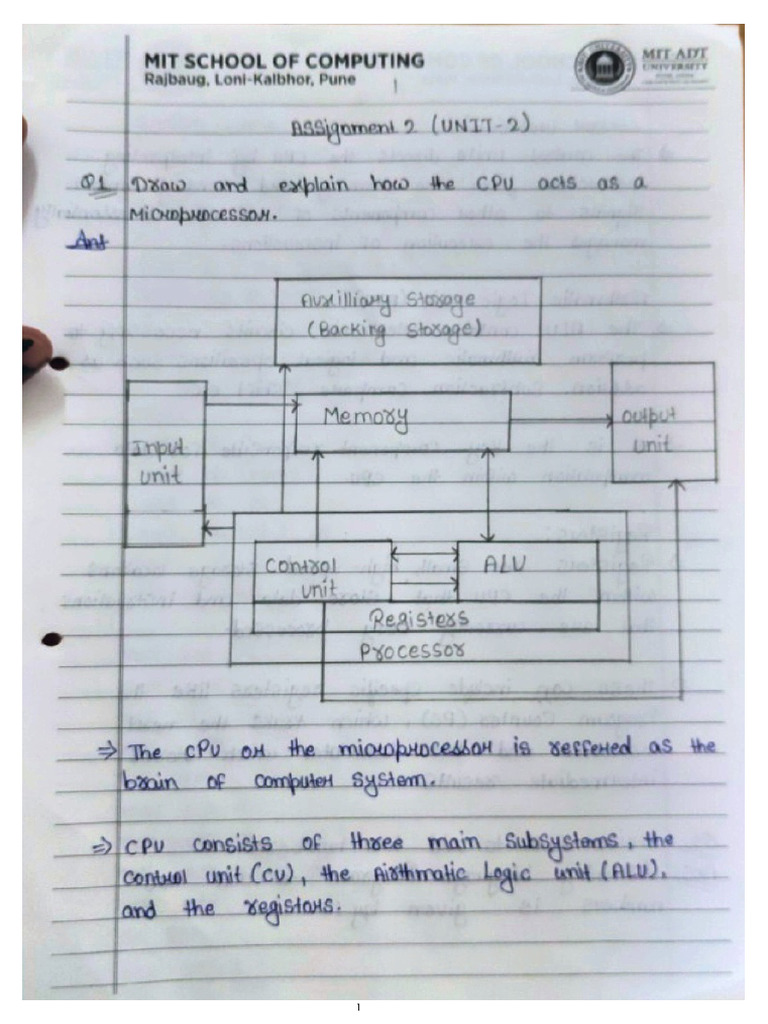 MIT SCHOOL OF COMPUTING
Rajbaug, Loni-Kalbhor, Pune
MIT ADT
UNIVERSITY
Assignment 2 (UNIT-2)
Q1 Draw and explain how the CPU acts as a
Microprocessor.
Ans
Auxilliary Storage
(Backing Storage)
Memory
Output
unit
Input
unit
Control
unit
ALU
Registers
Processor
⇒ The CPU or the microprocessor is reffered as the
brain of computer system.
⇒ CPU consists of three main subsystems, the
control unit (CU), the Airthmatic Logic unit (ALU),
and the registars.
1